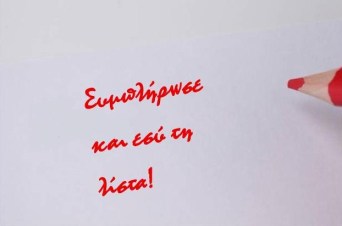 Συμπλήρωσε
και εσύ τη
λίστα!